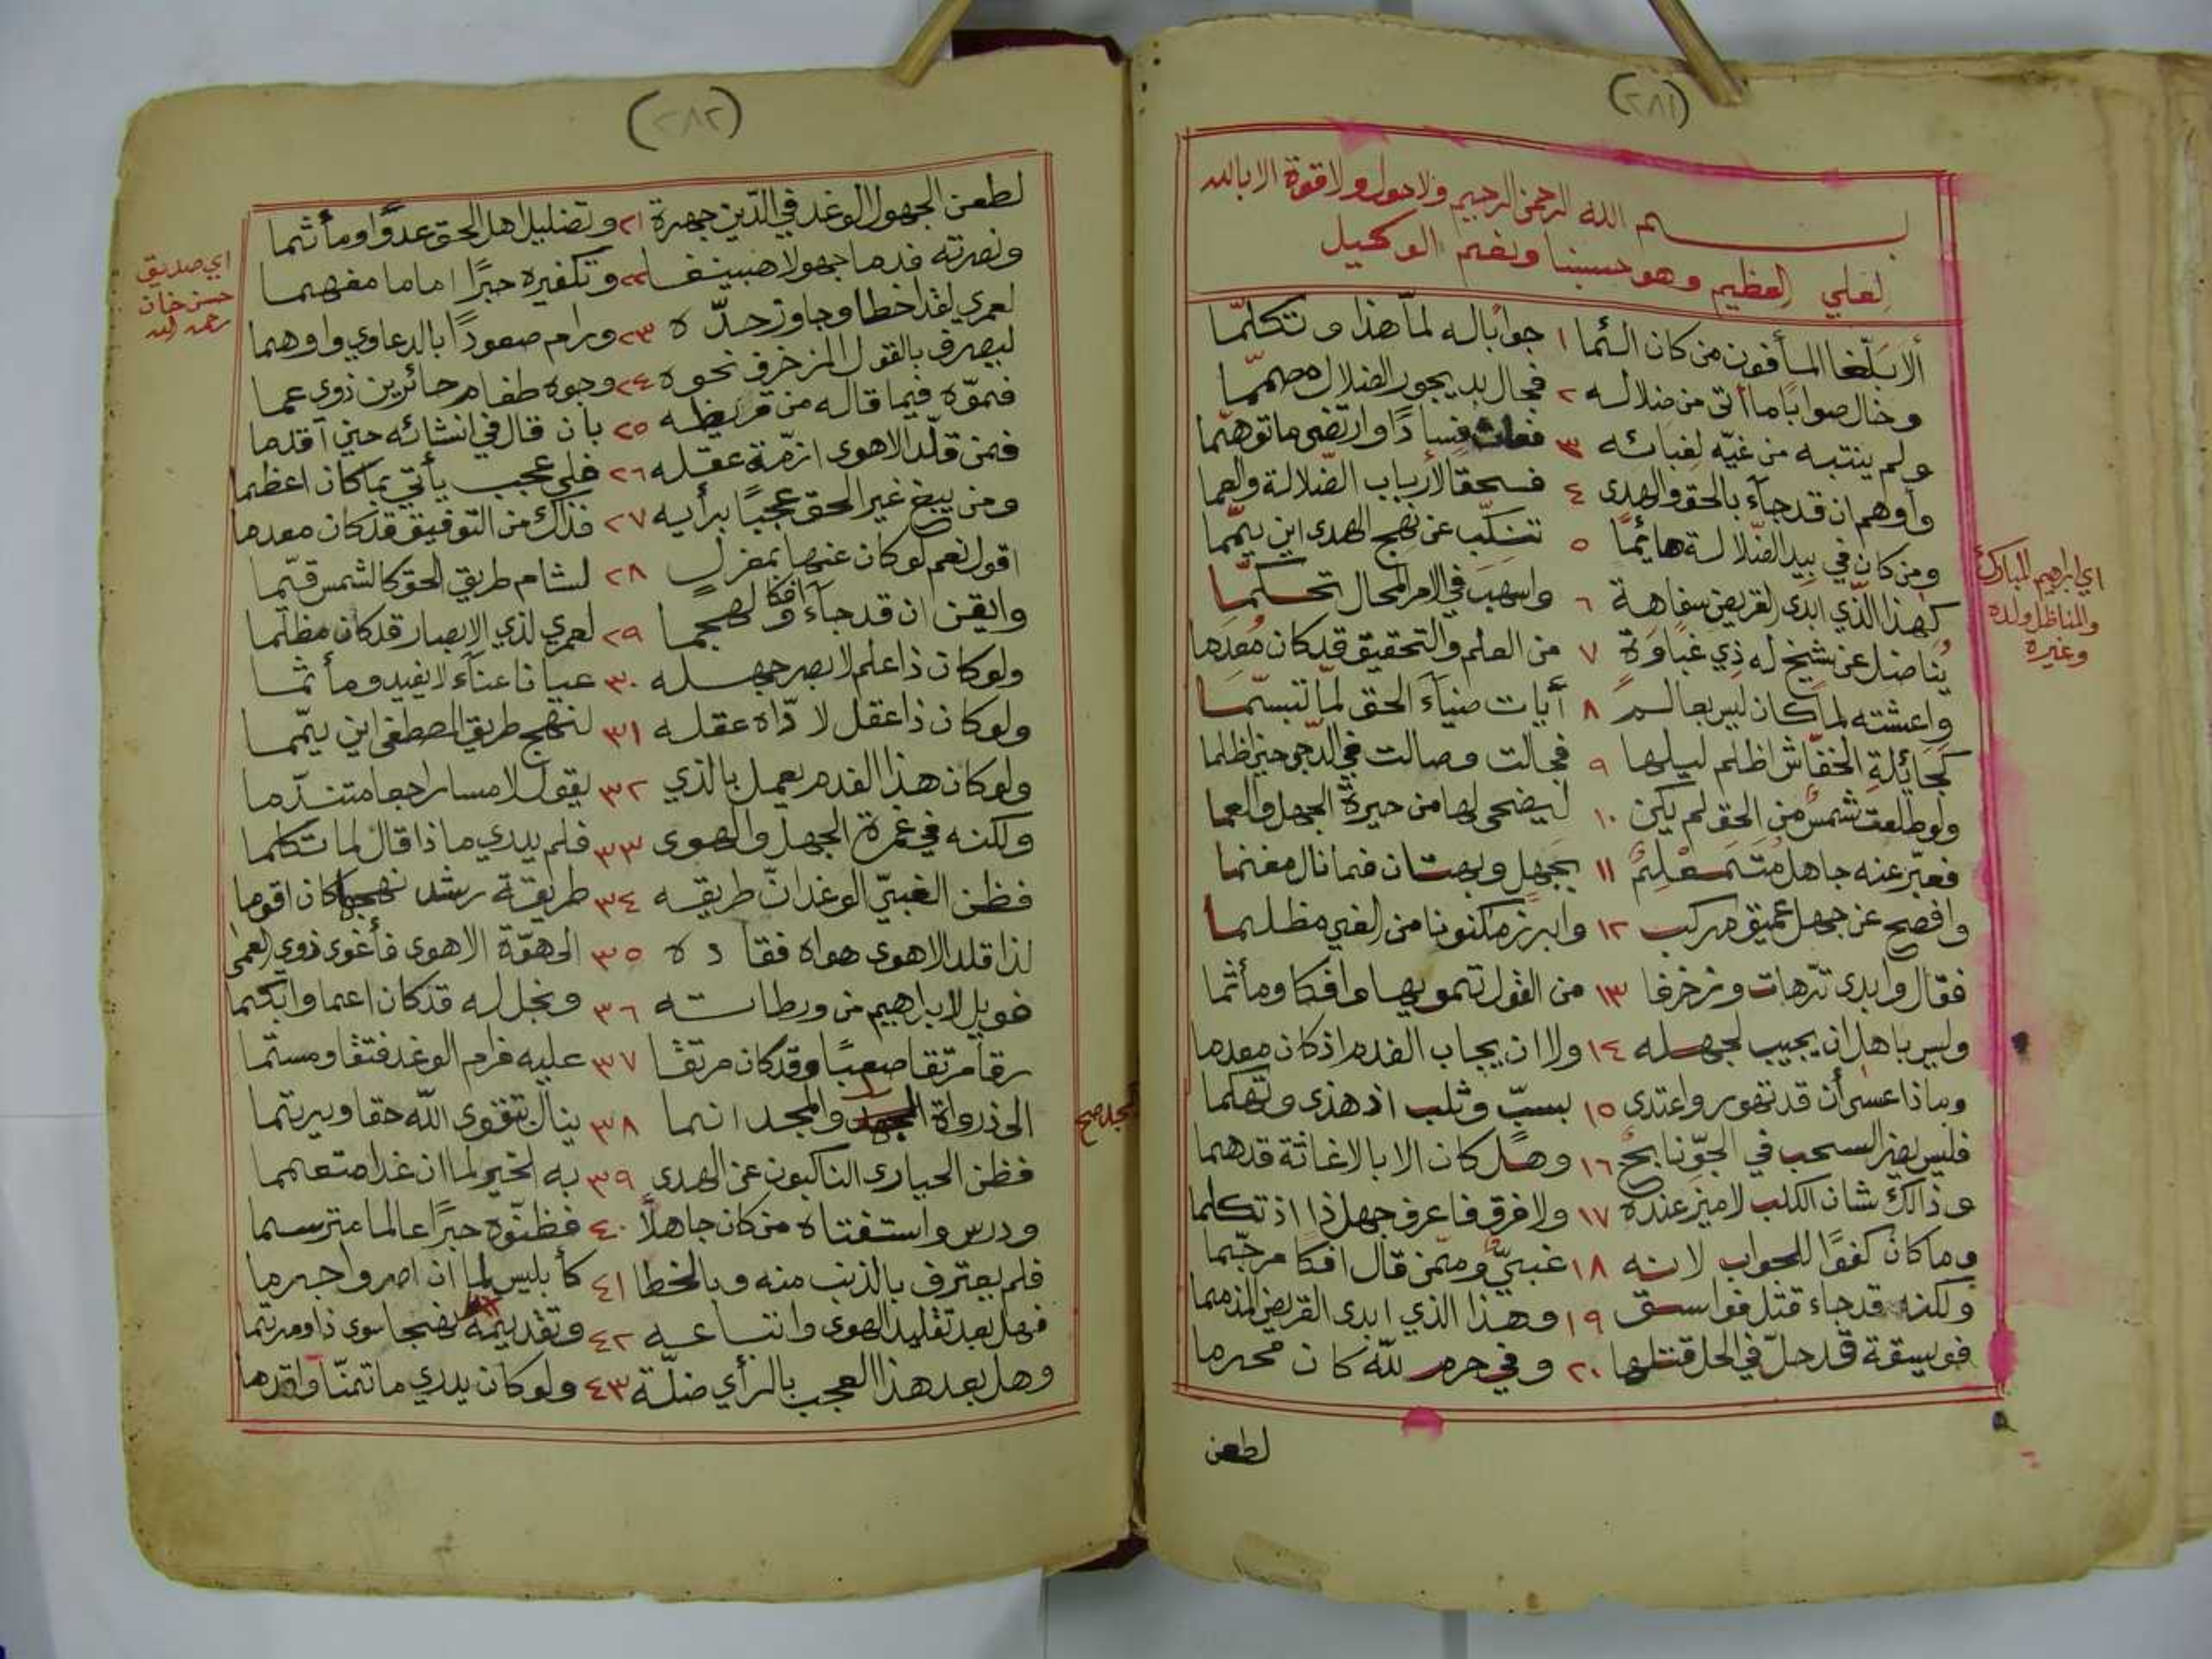 (٢٨١)
بسم الله الرحمن الرحيم ولا حول ولا قوة الا بالله
العلي العظيم وهو حسبنا ونعم الوكيل
ألا بَلّغا المأفون من كان ألئما ١ جوابًا له لمّا هذا وتكلّما
وخال صوابًا ما أتى من ضلاله ٢ فجال بديجور الضلال مصمّما
ولم ينتبه من غيّه لغبائه ٣ فعاث فسادًا وارتضى ما توهّما
وأوهم ان قد جاء بالحق والهدى ٤ فسحقا لأرباب الضّلالة والعما
ومن كان في بيد الضّلالة هائمًا ٥ تنكّب عن نهج الهدى اين يمّما
كهذا الّذي ابدى القريض سفاهة ٦ واسهب في الامر المحال تحكّما
يُناضل عن شيخ له ذي غباوة ٧ من العلم والتحقيق قد كان مُعدما
واعشته لما كان ليس بعالم ٨ أيات ضياء الحق لمّا تبسّما
كجائلة الخفّاش اظلم ليلها ٩ فجالت وصالت في الدّجى حين اظلما
ولو طلعت شمس من الحق لم يكن ١٠ ليضحى لها من حيرة الجهل والعما
فعبّر عنه جاهل متمعلم ١١ بجهل وبهتان فما نال مغنما
وافصح عن جهل عميق مركب ١٢ وابرز مكنونا من الغي مظلما
فقال وابدى ترّهات وزخرفا ١٣ من القول تمويها وافكا ومأثما
وليس باهل ان يجيب لجهله ١٤ ولا ان يجاب الفدم اذ كان معدما
وماذا عسى أن قد تهور واعتدى ١٥ بسبّ وثلب اذ هذى وتهكما
فليس يضر السحب في الجوّ نابح ١٦ وهل كان الا بالاغاثة قد هما
وذالك شان الكلب لا ميز عنده ١٧ ولا فرق فاعرف جهل ذا اذ تكلما
وما كان كفوًا للجواب لانه ١٨ غبيّ وممّن قال افكا مرجّما
ولكنه قد جاء قتل فواسق ١٩ وهذا الذي ابدى القريض المذمما
فويسقة قد حلّ في الحل قتلها ٢٠ وفي حرم لله كان محرما
لطعن
اي ابراهيم المبارك
والمناظل ولده
وغيره
(٢٨٢)
لطعن الجهول الوغد في الدّين جهرة ٢١ وتضليل اهل الحق عدوًا ومأثما
ونصرته فدما جهولا هبينفا ٢٢ وتكفيره حبرًا اماما مفهما
لعمري لقد اخطا وجاوز حدّه ٢٣ ورام صعودًا بالدعاوي واوهما
ليصرف بالقول المزخرف نحوه ٢٤ وجوه طغام حائرين ذوي عما
فموّه فيما قاله من قريظه ٢٥ بان قال في انشائه حين أقدما
فمن قلّد الاهوى ازمّة عقله ٢٦ فلي عجب يأتي بما كان اعظما
ومن يبغ غير الحق عجبًا برأيه ٢٧ فذاك من التوفيق قد كان معدما
اقول نعم لو كان عنها بمعزل ٢٨ لشام طريق الحق كالشمس قيّما
وايقن ان قد جاء افكا ولهجما ٢٩ لعمري لذي الابصار قد كان مظلما
ولو كان ذا علم لابصر جهله ٣٠ عيانا عناء لا يفيد ومأثما
ولو كان ذا عقل لادّاه عقله ٣١ لنهج طريق المصطفى اين يمّما
ولو كان هذا الفدم يعمل بالذي ٣٢ يقول لامسا راجعا متندّما
ولكنه في غمرة الجهل والهوى ٣٣ فلم يدري ماذا قال لما تكلما
فظن الغبيّ الوغد انّ طريقه ٣٤ طريقة رشد نهجها كان اقوما
لذا قلد الاهوى هواه فقاده ٣٥ الى هوّة الاهوى فأغوى ذوي العمى
فويل لابراهيم من ورطاته ٣٦ ونجل له قد كان اعما وابكما
رقا مرتقا صعبًا وقد كان مرتقا ٣٧ عليه فرام الوغد فتقا ومستما
الى ذروة المجد والمجد انما ٣٨ ينال بتقوى الله حقا ويرتما
فظن الحيارى الناكبون عن الهدى ٣٩ به الخير لما ان غدا متعمما
ودرس واستفتاه من كان جاهلًا ٤٠ فظنّوه حبرًا عالما مترسما
فلم يعترف بالذنب منه وبالخطا ٤١ كأبليس لما ان اصر واجرما
فهل بعد تقليد الهوى واتباعه ٤٢ وتقديمه نهجا سوى ذا ومرتما
وهل بعد هذا العجب بالرأي ضلّة ٤٣ ولو كان يدري ما تمنّا واقدما
اي صديق
حسن خان
رحمه الله
المجد صح